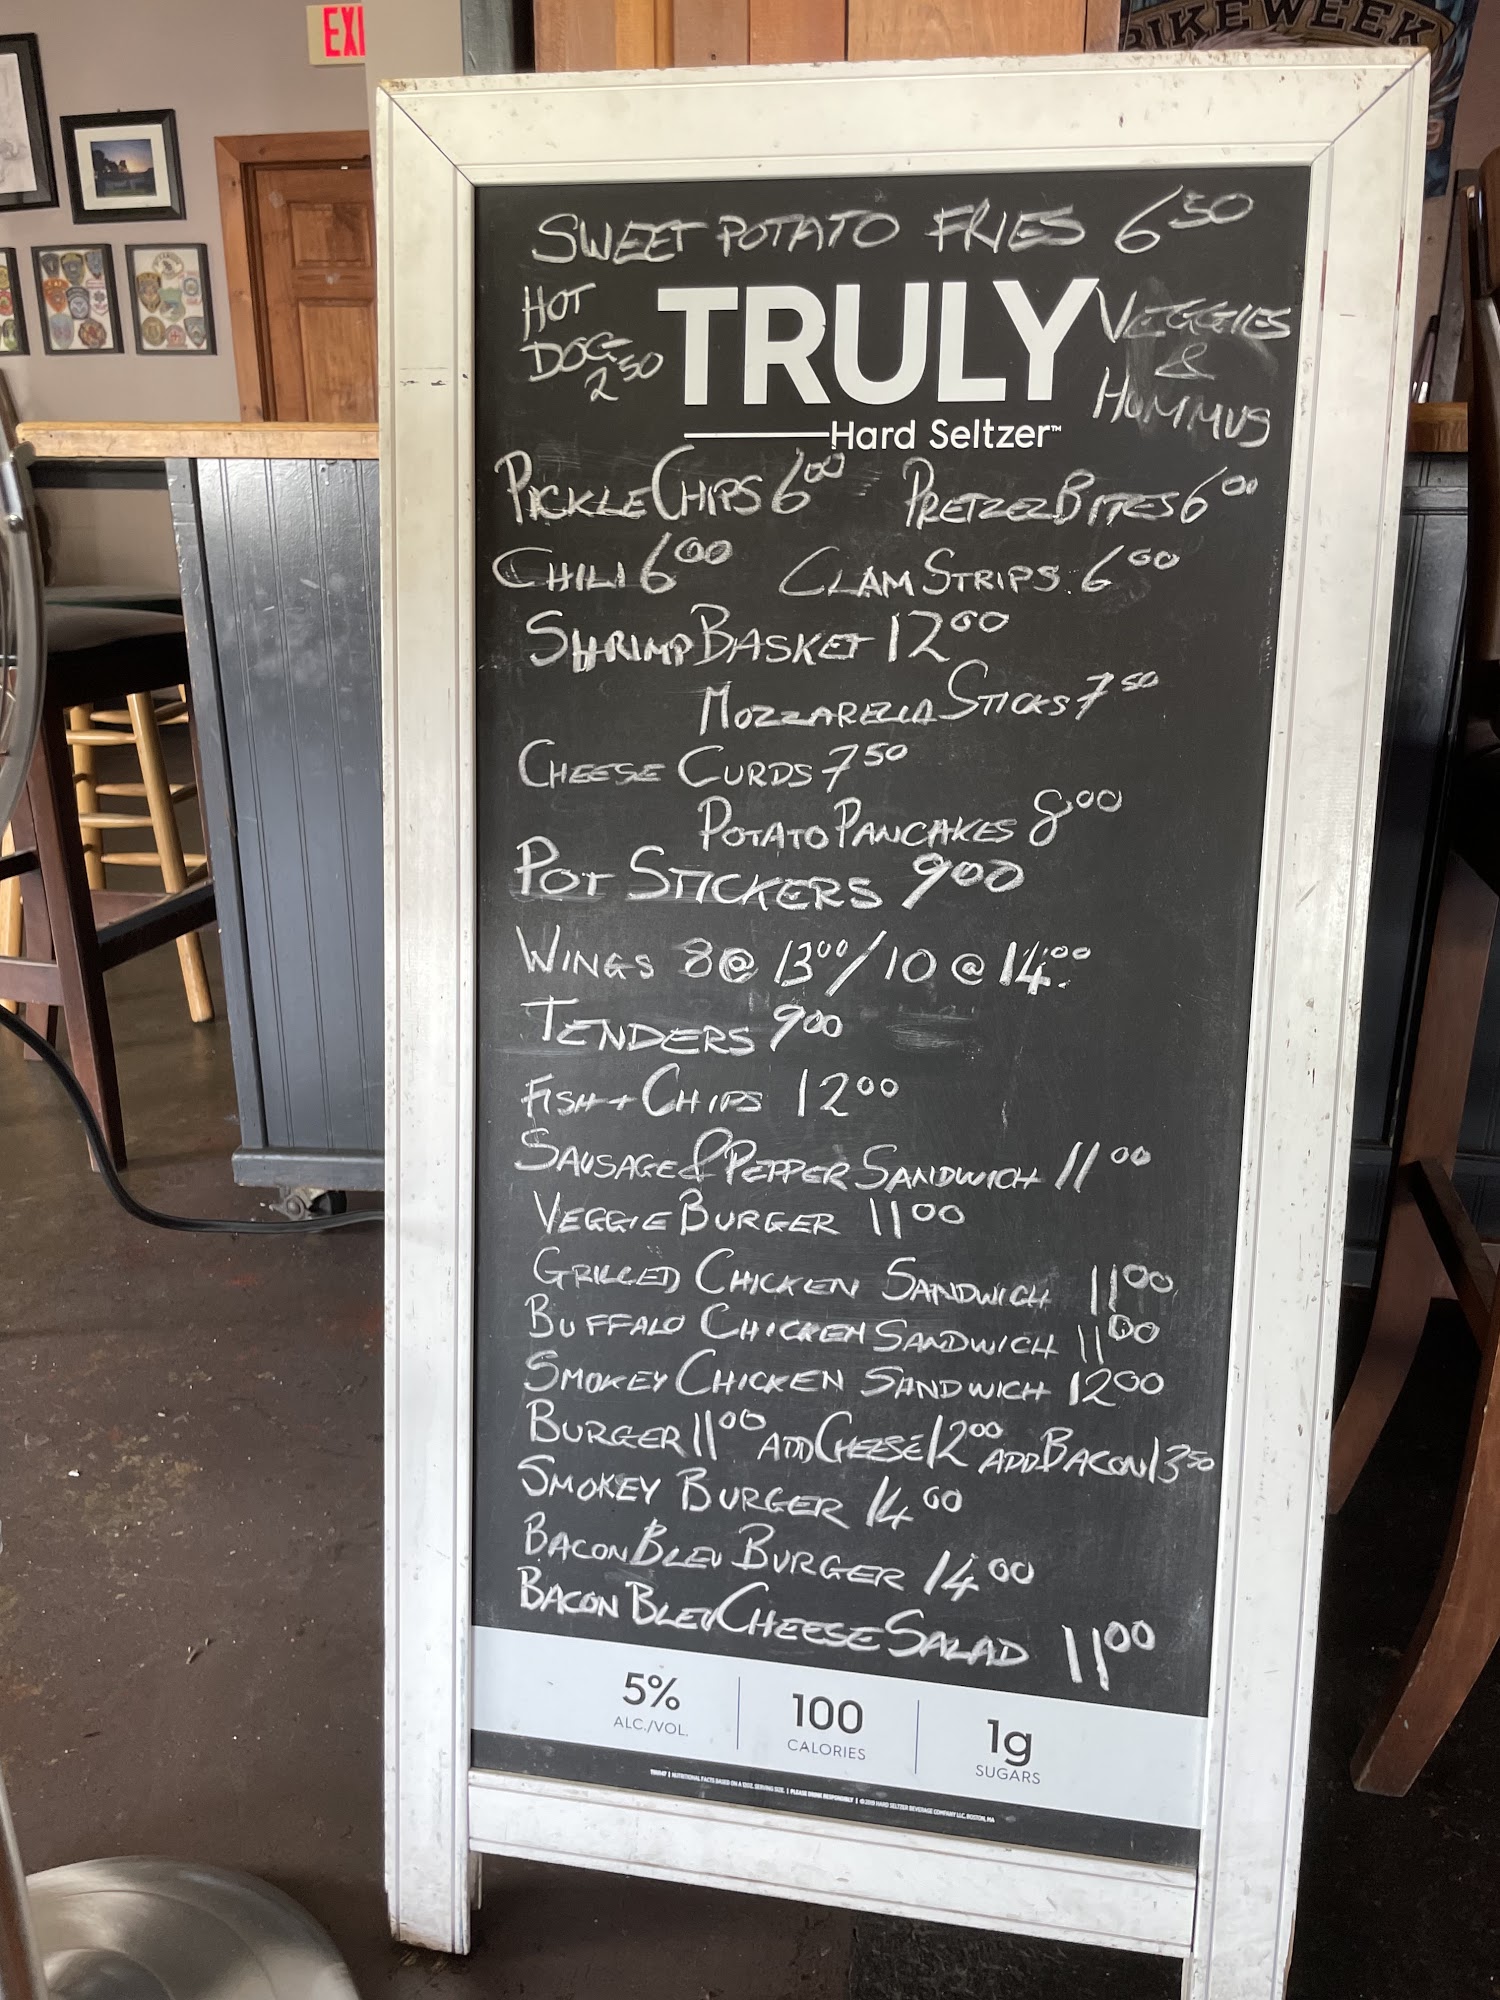 EXI
BIKE WEEK
SWEET POTATO FRIES 6 50
HOT
DOG
2 50
TRULY
Hard Seltzer™
VEGGIES
&
HUMMUS
PICKLE CHIPS 6 00 PRETZEL BITES 6 00
CHILI 6 00 CLAM STRIPS. 6 00
SHRIMP BASKET 12 00
MOZZARELLA STICKS 7 50
CHEESE CURDS 7 50
POTATO PANCAKES 8 00
POT STICKERS 9 00
WINGS 8 @ 13 00 / 10 @ 14. 00
TENDERS 9 00
FISH + CHIPS 12 00
SAUSAGE & PEPPER SANDWICH 11 00
VEGGIE BURGER 11 00
GRILLED CHICKEN SANDWICH 11 00
BUFFALO CHICKEN SANDWICH 11 00
SMOKEY CHICKEN SANDWICH 12 00
BURGER 11 00 ADD CHEESE 12 00 ADD BACON 13 50
SMOKEY BURGER 14 00
BACON BLEU BURGER 14 00
BACON BLEU CHEESE SALAD 11 00
5% 100 1g
ALC./VOL. CALORIES SUGARS
NUTRITIONAL FACTS BASED ON A 12OZ. SERVING SIZE. | PLEASE DRINK RESPONSIBLY | ©2019 HARD SELTZER BEVERAGE COMPANY LLC, BOSTON, MA